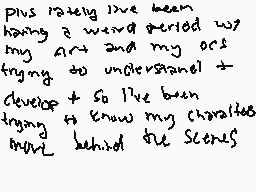 plus lately I've been
having a weird period w/
my art and my ocs
trying to understand +
develop + so I've been
trying to know my characters
more behind the scenes